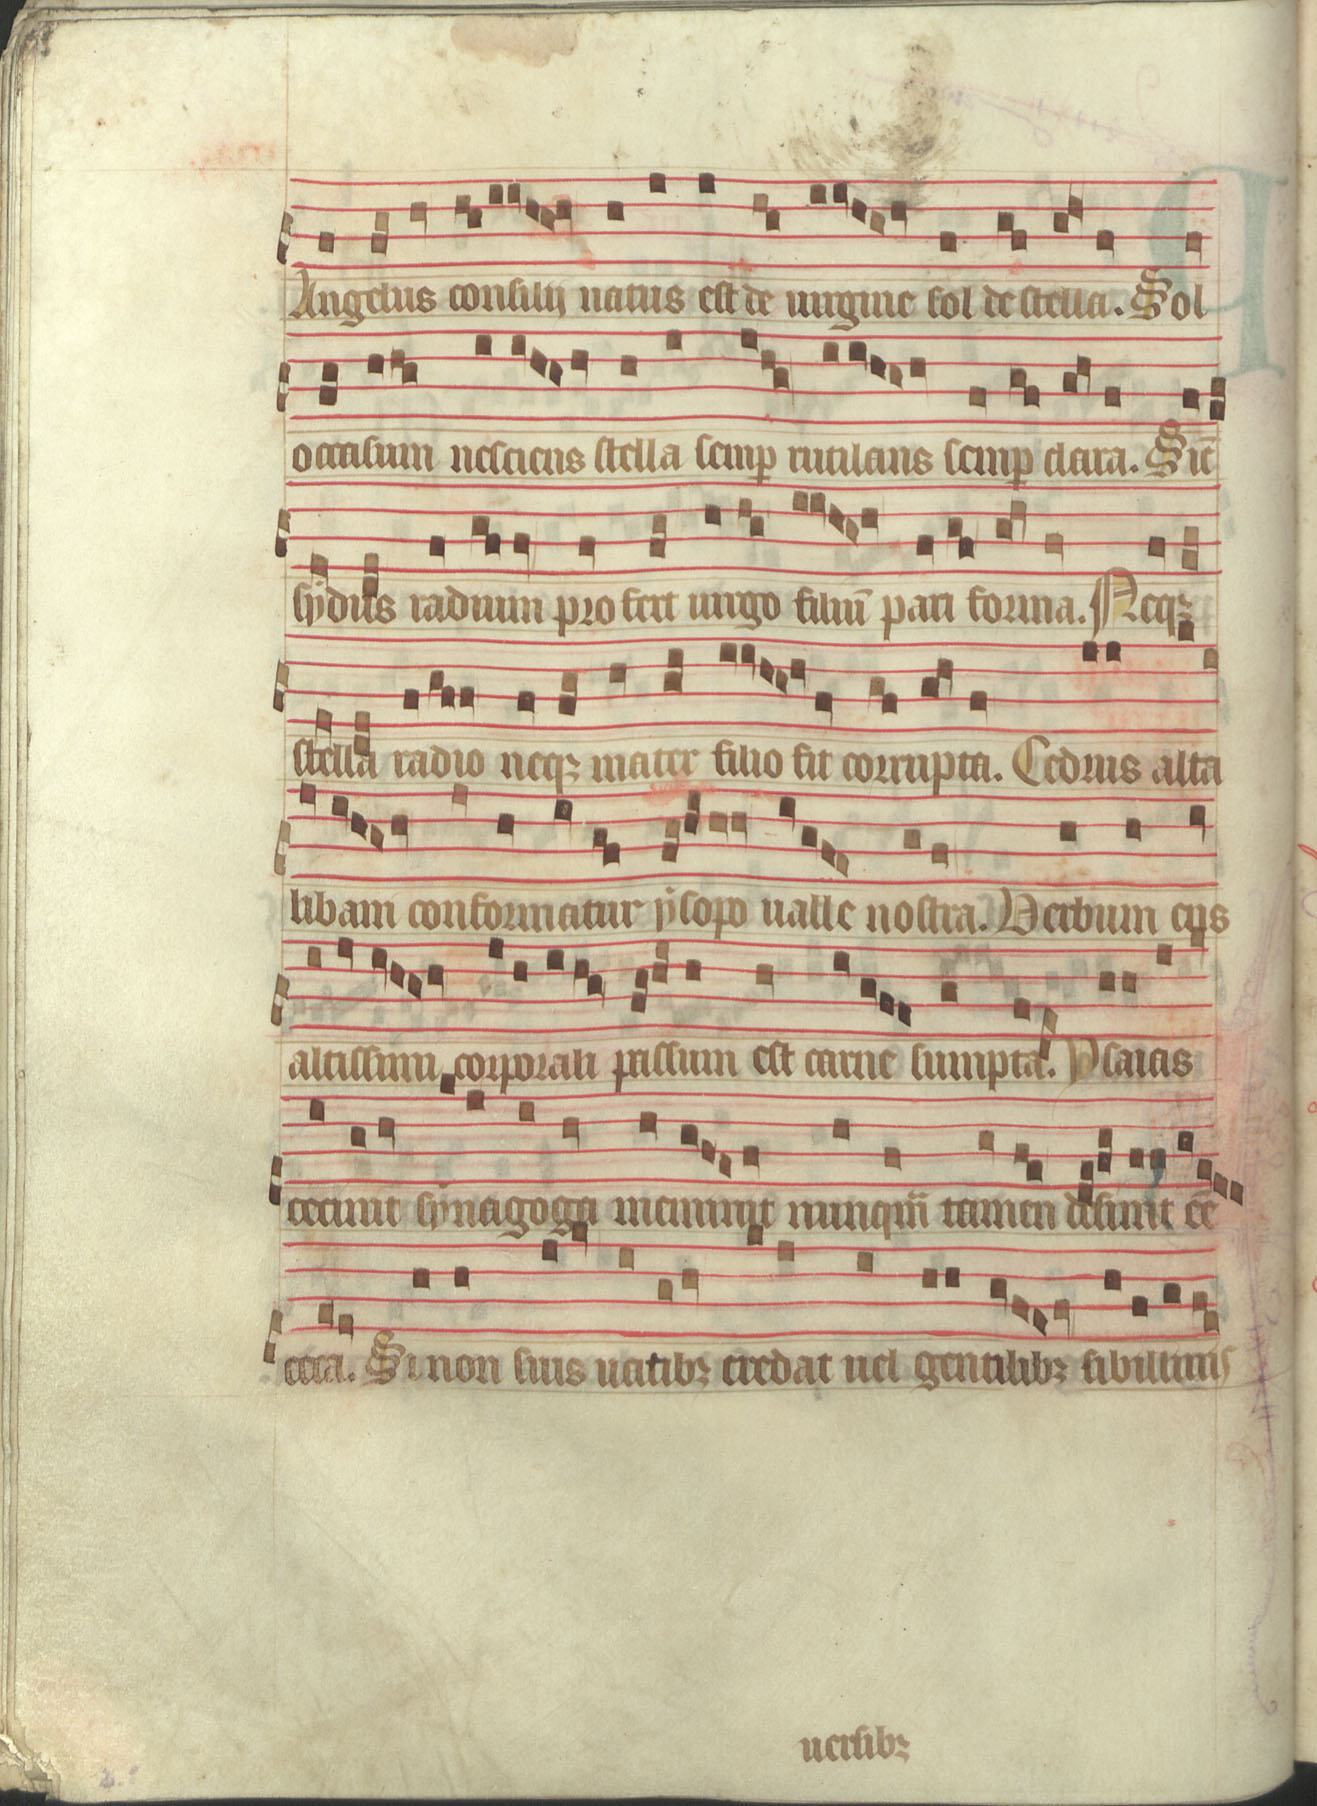 Angelus consilij natus est de uirgine sol de stella. Sol
occasum nesciens stella semp rutilans semp clara. Sic̄
sydus radium pro fert uirgo filiū pari forma. Neqꝫ
stella radio neqꝫ mater filio fit corrupta. Cedrus alta
libani conformatur ysopo ualle nostra. Verbum ens
altissimi corporali passum est carne sumpta. Ysaias
cecinit synagoga meminit nunqm̄ tamen desinit eē
ceca. Si non suis uatibꝫ credat uel gentilibꝫ sibillinis
uersibꝫ